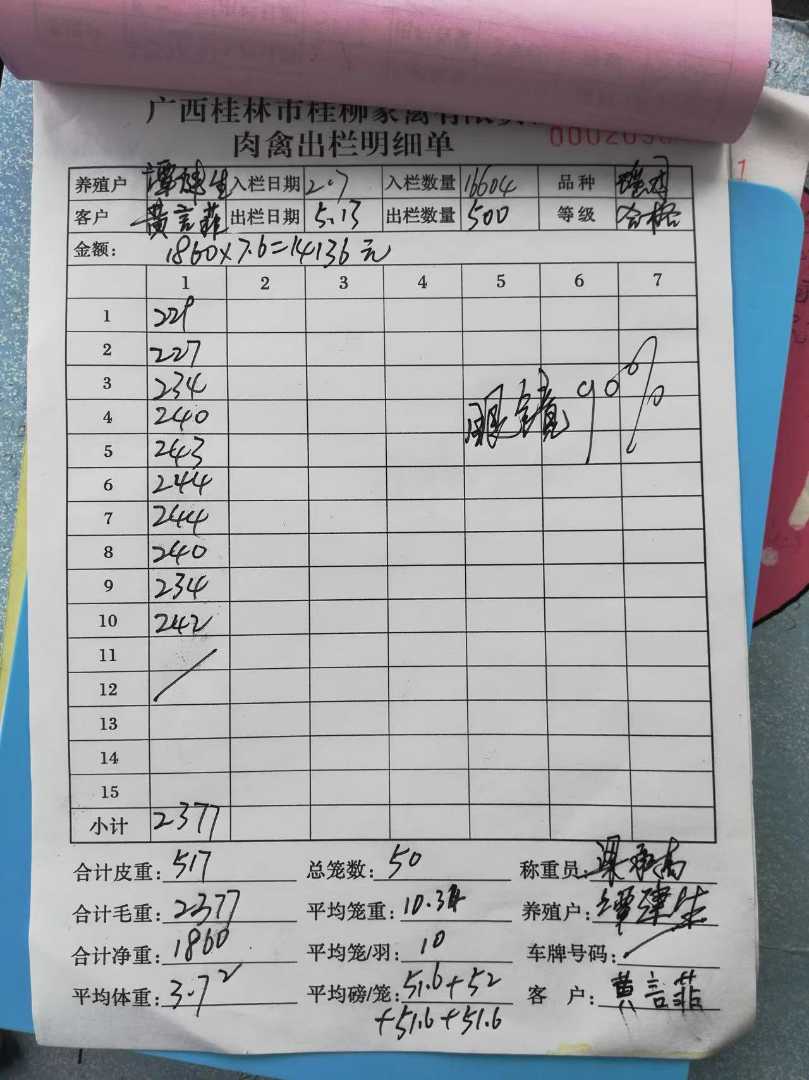 广西桂林市桂柳家禽有限责
肉禽出栏明细单 000209
养殖户 谭建生 入栏日期 2.7 入栏数量 16604 品种
客户 黄言菲 出栏日期 5.13 出栏数量 500 等级 合格
金额: 1860×7.6=14136元
1 2 3 4 5 6 7
1 229
2 227
3 234 眼镜90%
4 240
5 243
6 244
7 244
8 240
9 234
10 242
11
12
13
14
15
小计 2377
合计皮重: 517 总笼数: 50 称重员:
合计毛重: 2377 平均笼重: 10.34 养殖户: 谭建生
合计净重: 1860 平均笼/羽: 10 车牌号码:
平均体重: 3.72 平均磅/笼: 51.6+52 客 户: 黄言菲
+51.6+51.6